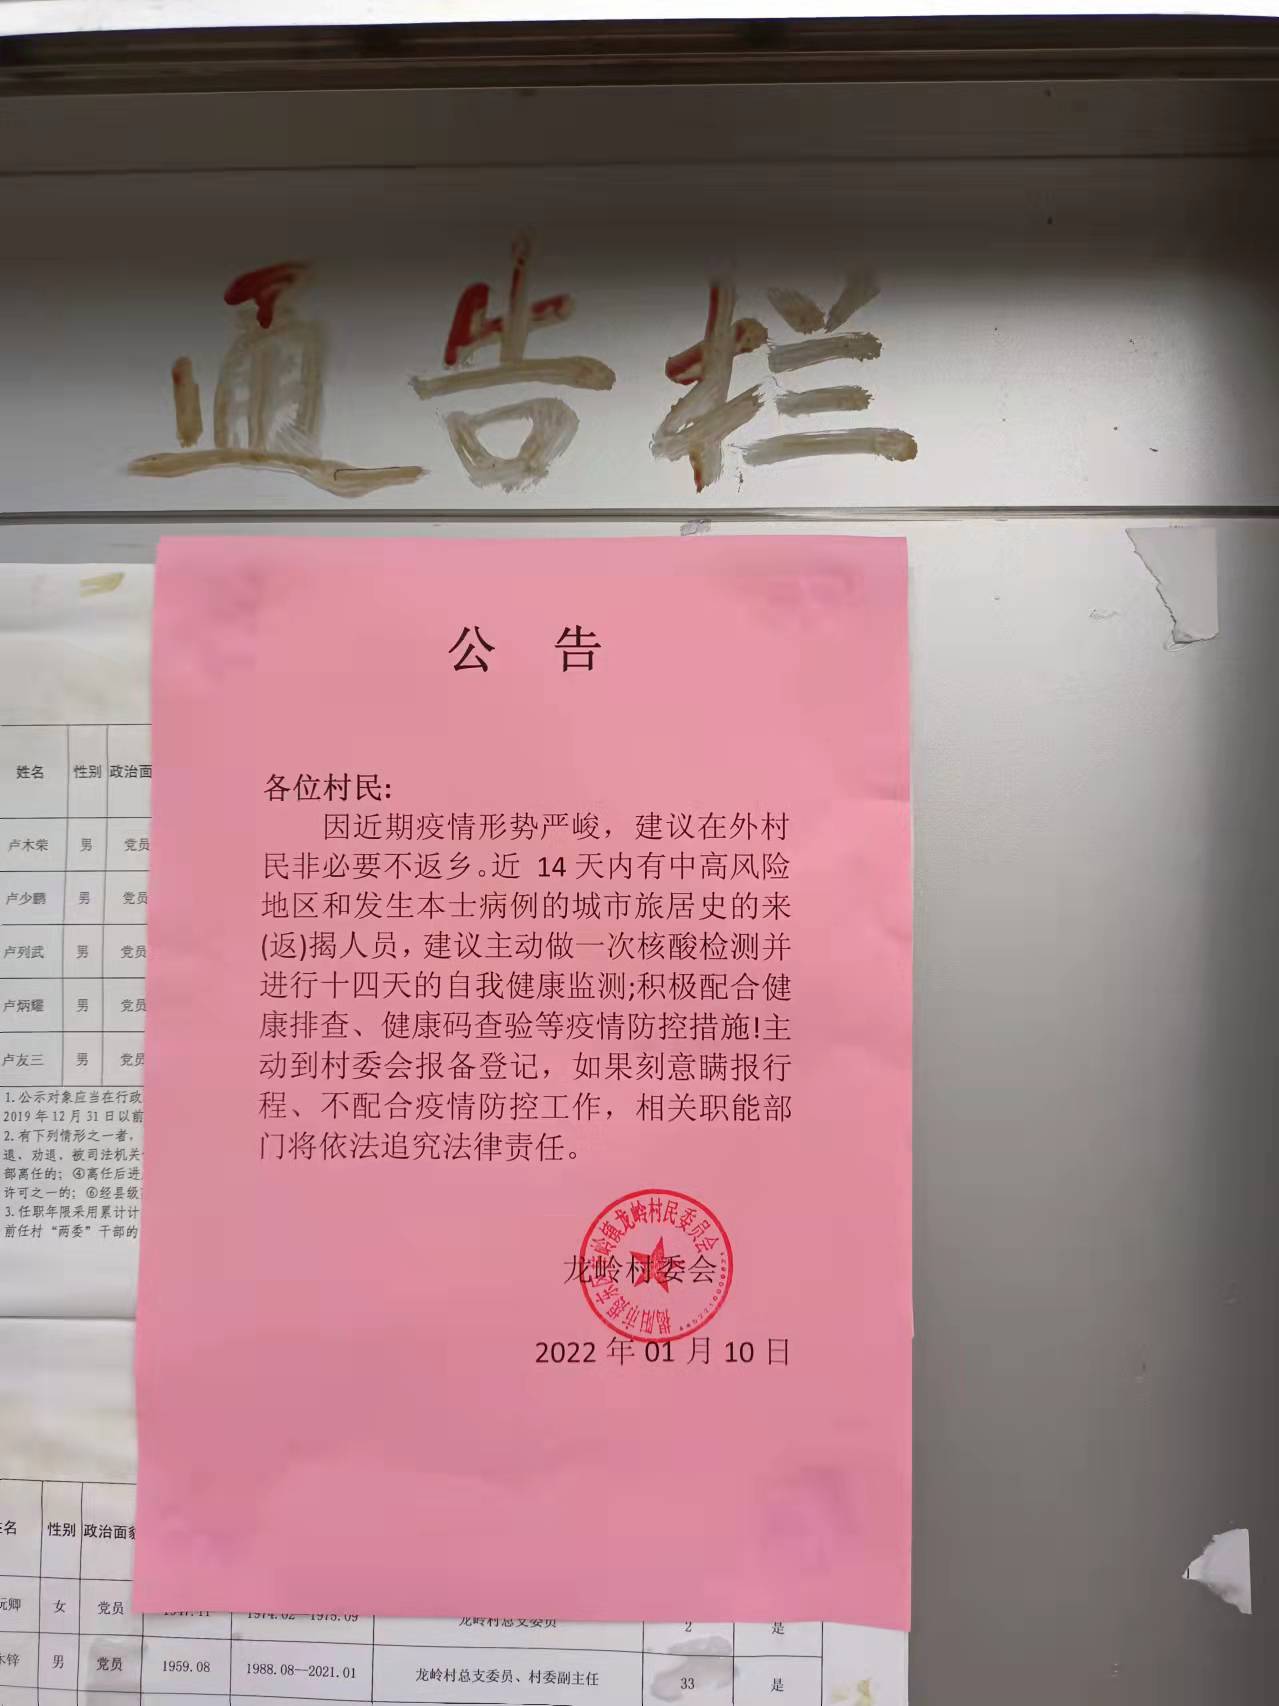 通告栏
公 告
各位村民:
因近期疫情形势严峻，建议在外村
民非必要不返乡。近 14 天内有中高风险
地区和发生本士病例的城市旅居史的来
(返)揭人员，建议主动做一次核酸检测并
进行十四天的自我健康监测;积极配合健
康排查、健康码查验等疫情防控措施!主
动到村委会报备登记，如果刻意瞒报行
程、不配合疫情防控工作，相关职能部
门将依法追究法律责任。
龙岭村委会
2022 年 01 月 10 日
姓名 性别 政治面
卢木荣 男 党员
卢少鹏 男 党员
卢列武 男 党员
卢炳耀 男 党员
卢友三 男 党员
1.公示对象应当在行政
2019 年 12 月 31 日以前
2.有下列情形之一者，
退、劝退、被司法机关
部离任的；④离任后进
许可之一的；⑥经县级
3.任职年限采用累计计
前任村“两委”干部的
名 性别 政治面貌
卿 女 党员 1947.11 1974.02--1975.09 龙岭村总支委员 2 是
锌 男 党员 1959.08 1988.08--2021.01 龙岭村总支委员、村委副主任 33 是